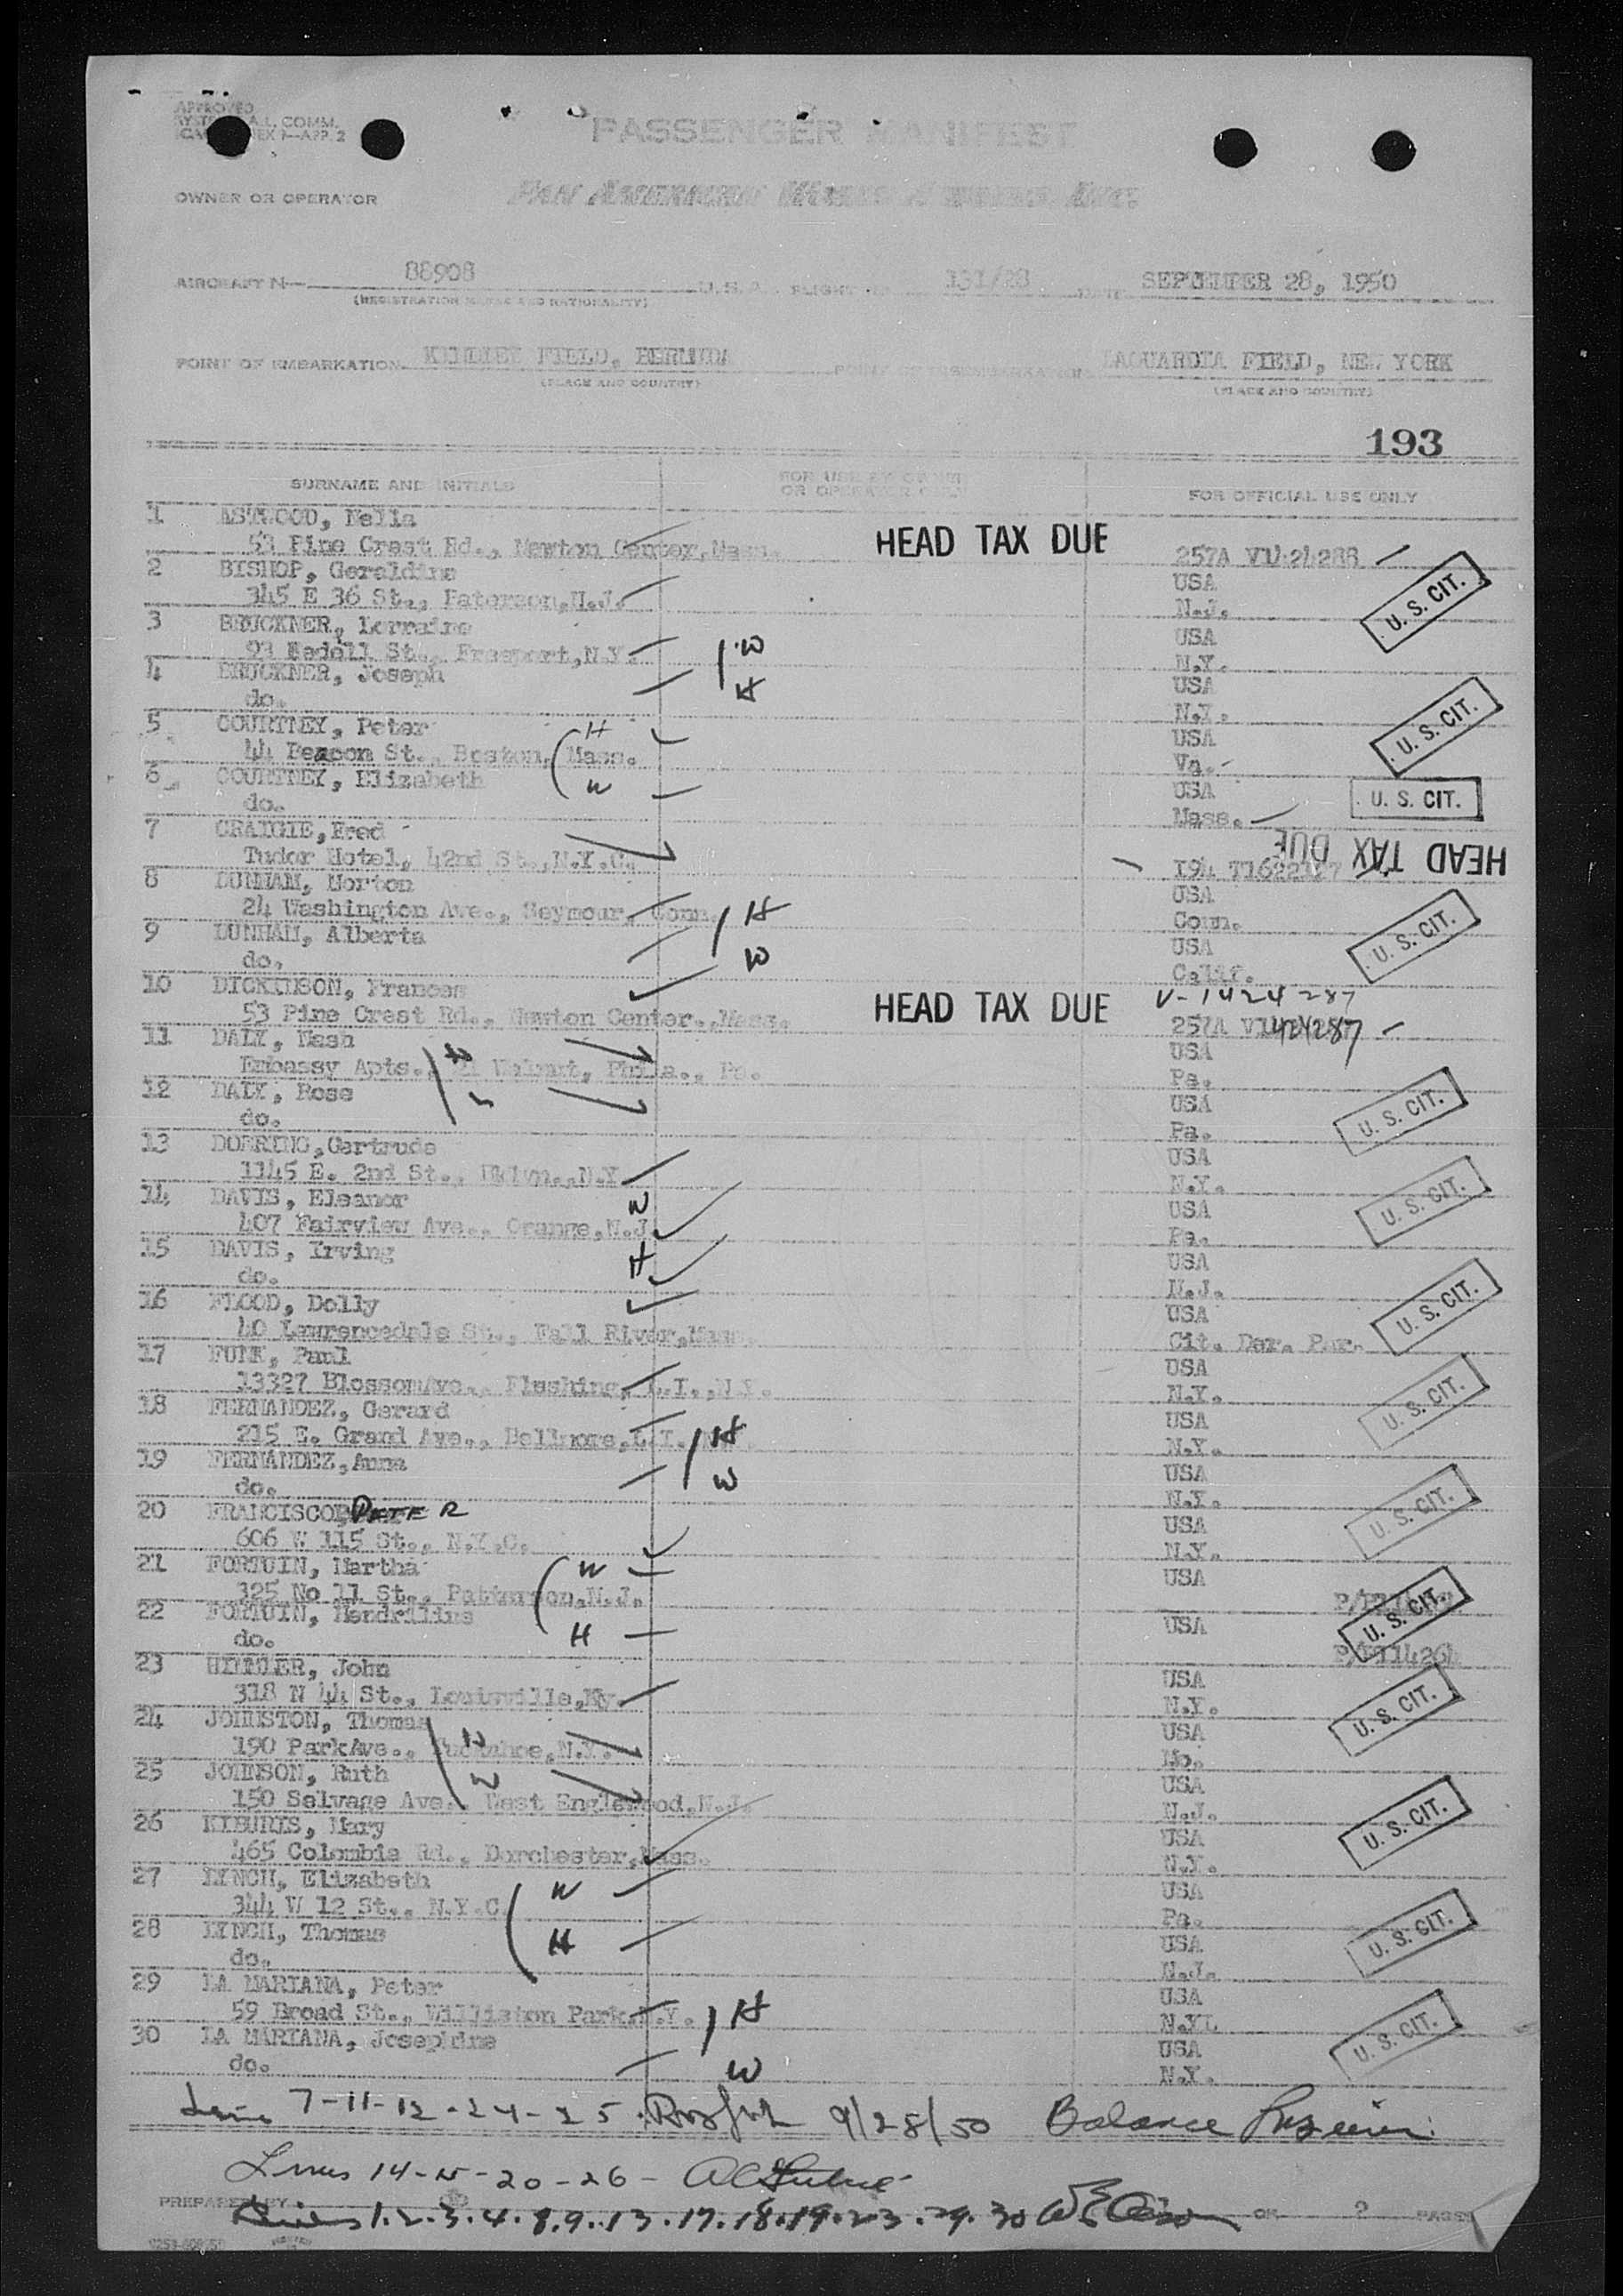 APPROVED
PASSENGER MANIFEST
OWNER OR OPERATOR PAN AMERICAN WORLD AIRWAYS, INC.
AIRCRAFT N— 88908 U.S.A. FLIGHT 131/28 DATE SEPTEMBER 28, 1950
(REGISTRATION MARKS AND NATIONALITY)
POINT OF EMBARKATION KINDLEY FIELD, BERMUDA POINT OF DISEMBARKATION LAGUARDIA FIELD, NEW YORK
(PLACE AND COUNTRY) (PLACE AND COUNTRY)
193
SURNAME AND INITIALS FOR USE BY OWNER OR OPERATOR ONLY FOR OFFICIAL USE ONLY
1 ASTWOOD, Nella
53 Pine Crest Rd., Newton Center, Mass. HEAD TAX DUE 257A V1424288
2 BISHOP, Geraldine USA
345 E 36 St., Paterson, N.J. N.J. U. S. CIT.
3 BRUCKNER, Lorraine USA
93 Bedell St., Freeport, N.Y. W N.Y.
4 BRUCKNER, Joseph H USA
do. N.Y. U. S. CIT.
5 COURTNEY, Peter H USA
44 Beacon St., Boston, Mass. Va.
6 COURTNEY, Elizabeth W USA U. S. CIT.
do. Mass.
7 CRAIGIE, Fred HEAD TAX DUE
Tudor Hotel, 42nd St., N.Y.C. I94
8 DUNHAM, Morton USA
24 Washington Ave., Seymour, Conn. H Conn. U. S. CIT.
9 DUNHAM, Alberta USA
do. W Calif.
10 DICKINSON, Frances HEAD TAX DUE V-1424287
53 Pine Crest Rd., Newton Center, Mass. 257A V1424287
11 DALY, Nash USA
Embassy Apts., Walnut, Phila., Pa. H Pa.
12 DALY, Rose W USA U. S. CIT.
do. Pa.
13 DOERING, Gertrude USA
1145 E. 2nd St., Bklyn., N.Y. N.Y.
14 DAVIS, Eleanor W USA U. S. CIT.
407 Fairview Ave., Orange, N.J. Pa.
15 DAVIS, Irving H USA
do. N.J.
16 FLOOD, Dolly USA U. S. CIT.
40 Lawrencedale St., Fall River, Mass. Cit. Der. Par.
17 FUNK, Paul USA
13327 Blossom Ave., Flushing, L.I., N.Y. N.Y. U. S. CIT.
18 FERNANDEZ, Gerard USA
215 E. Grand Ave., Bellmore, L.I. H N.Y.
19 FERNANDEZ, Anna W USA
do. N.Y. U. S. CIT.
20 FRANCISCO, PETER USA
606 W 115 St., N.Y.C. N.Y.
21 FORTUIN, Martha W USA
325 No 11 St., Patterson, N.J. U. S. CIT.
22 FORTUIN, USA
do. H
23 John USA
318 N 44 St., Louisville, Ky. N.Y. U. S. CIT.
24 JOHNSTON, Thomas USA
190 Park Ave., Tuckahoe, N.Y. H Mo.
25 JOHNSON, Ruth W USA
150 Selvage Ave., West Englewood, N.J. N.J. U. S. CIT.
26 KIBURIS, Mary USA
465 Colombia Rd., Dorchester, Mass. N.Y.
27 LYNCH, Elizabeth W USA
344 W 12 St., N.Y.C. Pa. U. S. CIT.
28 LYNCH, Thomas H USA
do. N.J.
29 LA MARIANA, Peter USA
59 Broad St., Williston Park, N.Y. H N.Y. U. S. CIT.
30 LA MARIANA, Josephine USA
do. W N.Y.
7-11-12-24-25 9/28/50 Balance
Lines 14-15-20-26-
PREPARED BY
Lines 1.2.3.4.8.9.13.17.18.19.23.29.30